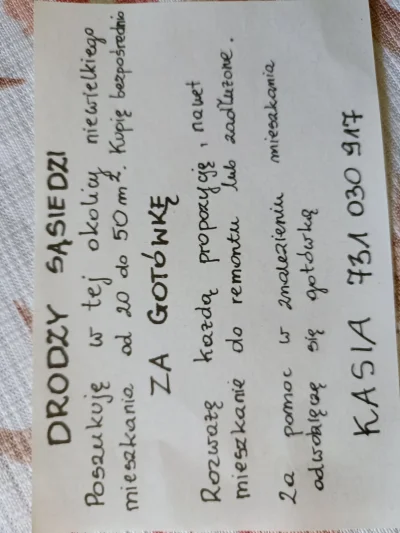 DRODZY SĄSIEDZI
Poszukuję w tej okolicy niewielkiego
mieszkania od 20 do 50 m2. Kupię bezpośrednio
ZA GOTÓWKĘ
Rozważę każdą propozycję, nawet
mieszkanie do remontu lub zadłużone.
Za pomoc w znalezieniu mieszkania
odwdzięczę się gotówką
KASIA 731 030 917